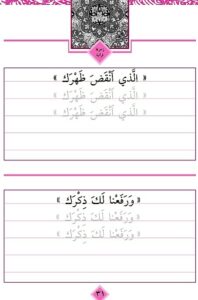 « الَّذي اَنْقَضَ ظَهْرَك »
« الَّذي اَنْقَضَ ظَهْرَك »
« الَّذي اَنْقَضَ ظَهْرَك »
« وَرَفَعْنا لَكَ ذِكْرَك »
« وَرَفَعْنا لَكَ ذِكْرَك »
« وَرَفَعْنا لَكَ ذِكْرَك »
٣١